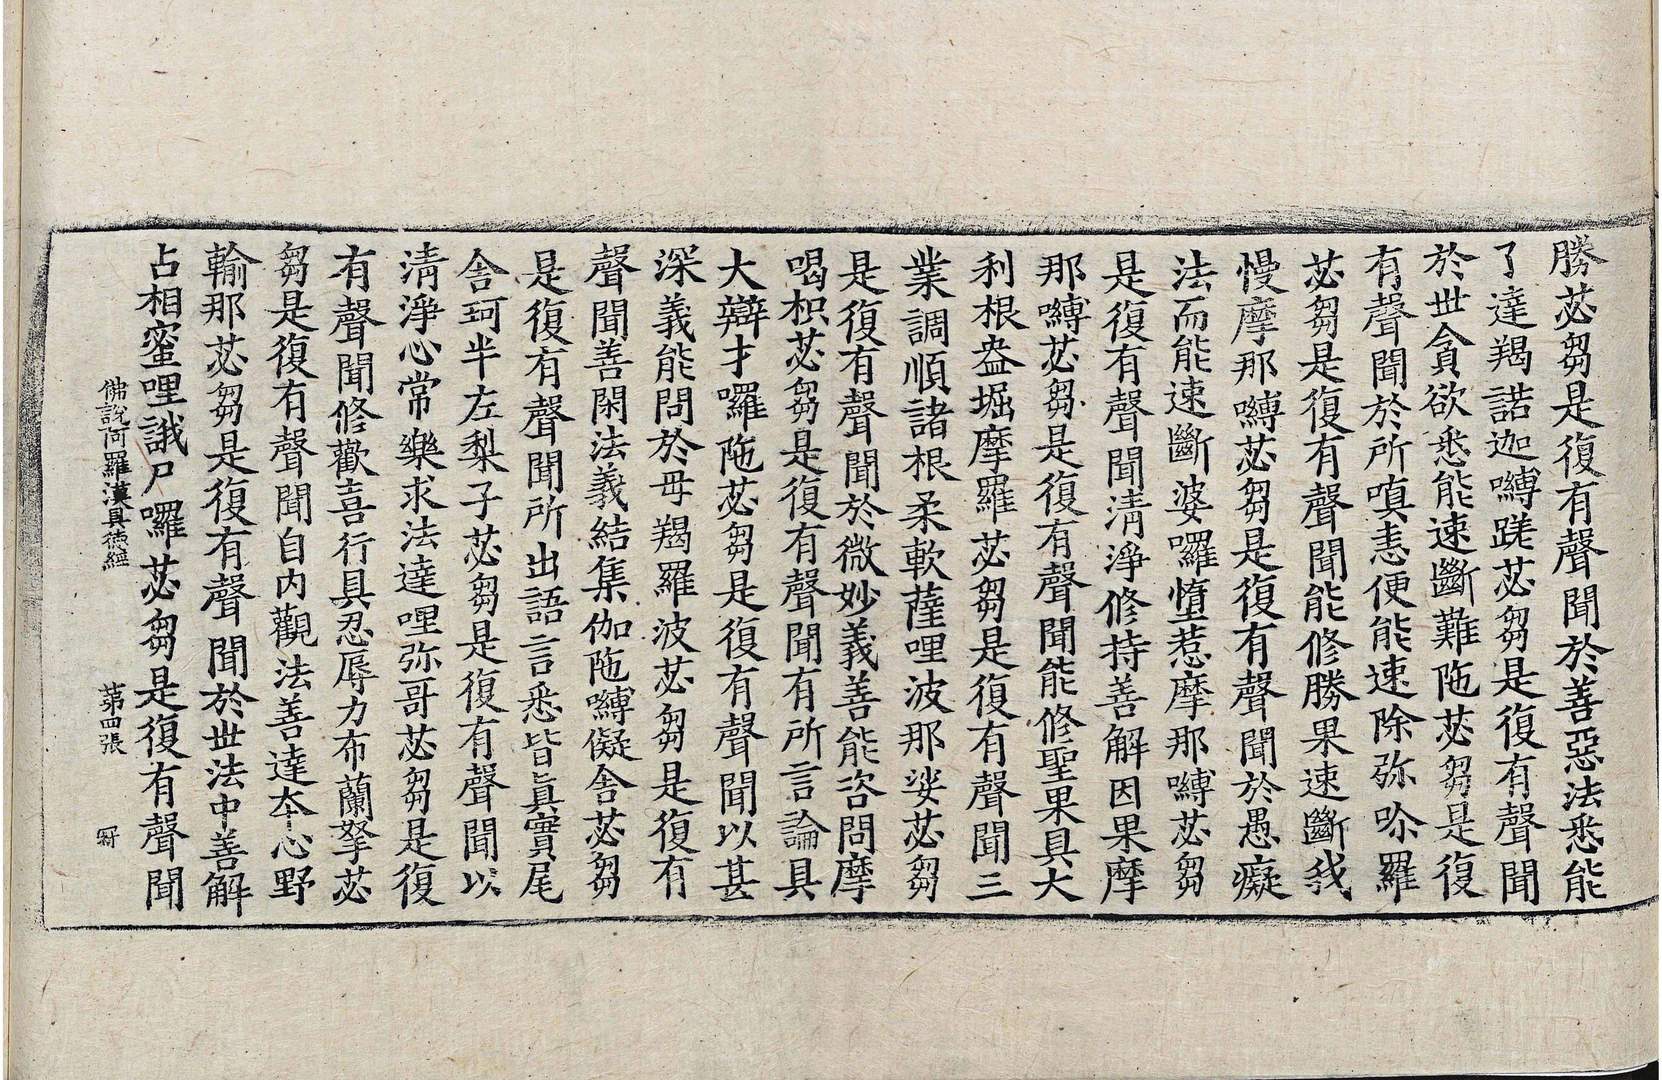 勝苾芻是復有聲聞於善惡法悉能
了達羯諾迦嚩蹉苾芻是復有聲聞
於世貪欲悉能速斷難陁苾芻是復
有聲聞於所嗔恚便能速除弥吤羅
苾芻是復有聲聞能修勝果速斷我
慢摩那嚩苾芻是復有聲聞於愚癡
法而能速斷婆囉墮惹摩那嚩苾芻
是復有聲聞清淨修持善解因果摩
那嚩苾芻是復有聲聞能修聖果具大
利根盎堀摩羅苾芻是復有聲聞三
業調順諸根柔軟薩哩波那娑苾芻
是復有聲聞於微妙義善能咨問摩
喝枳苾芻是復有聲聞有所言論具
大辯才囉陁苾芻是復有聲聞以甚
深義能問於母羯羅波苾芻是復有
聲聞善閑法義結集伽陁嚩儗舍苾芻
是復有聲聞所出語言悉皆眞實尾
舍珂半左梨子苾芻是復有聲聞以
清淨心常樂求法達哩弥哥苾芻是復
有聲聞修歡喜行具忍辱力布蘭拏苾
芻是復有聲聞自内觀法善達夲心野
輸那苾芻是復有聲聞於世法中善解
占相蜜哩誐尸囉苾芻是復有聲聞
佛說阿羅漢具德經 第四張